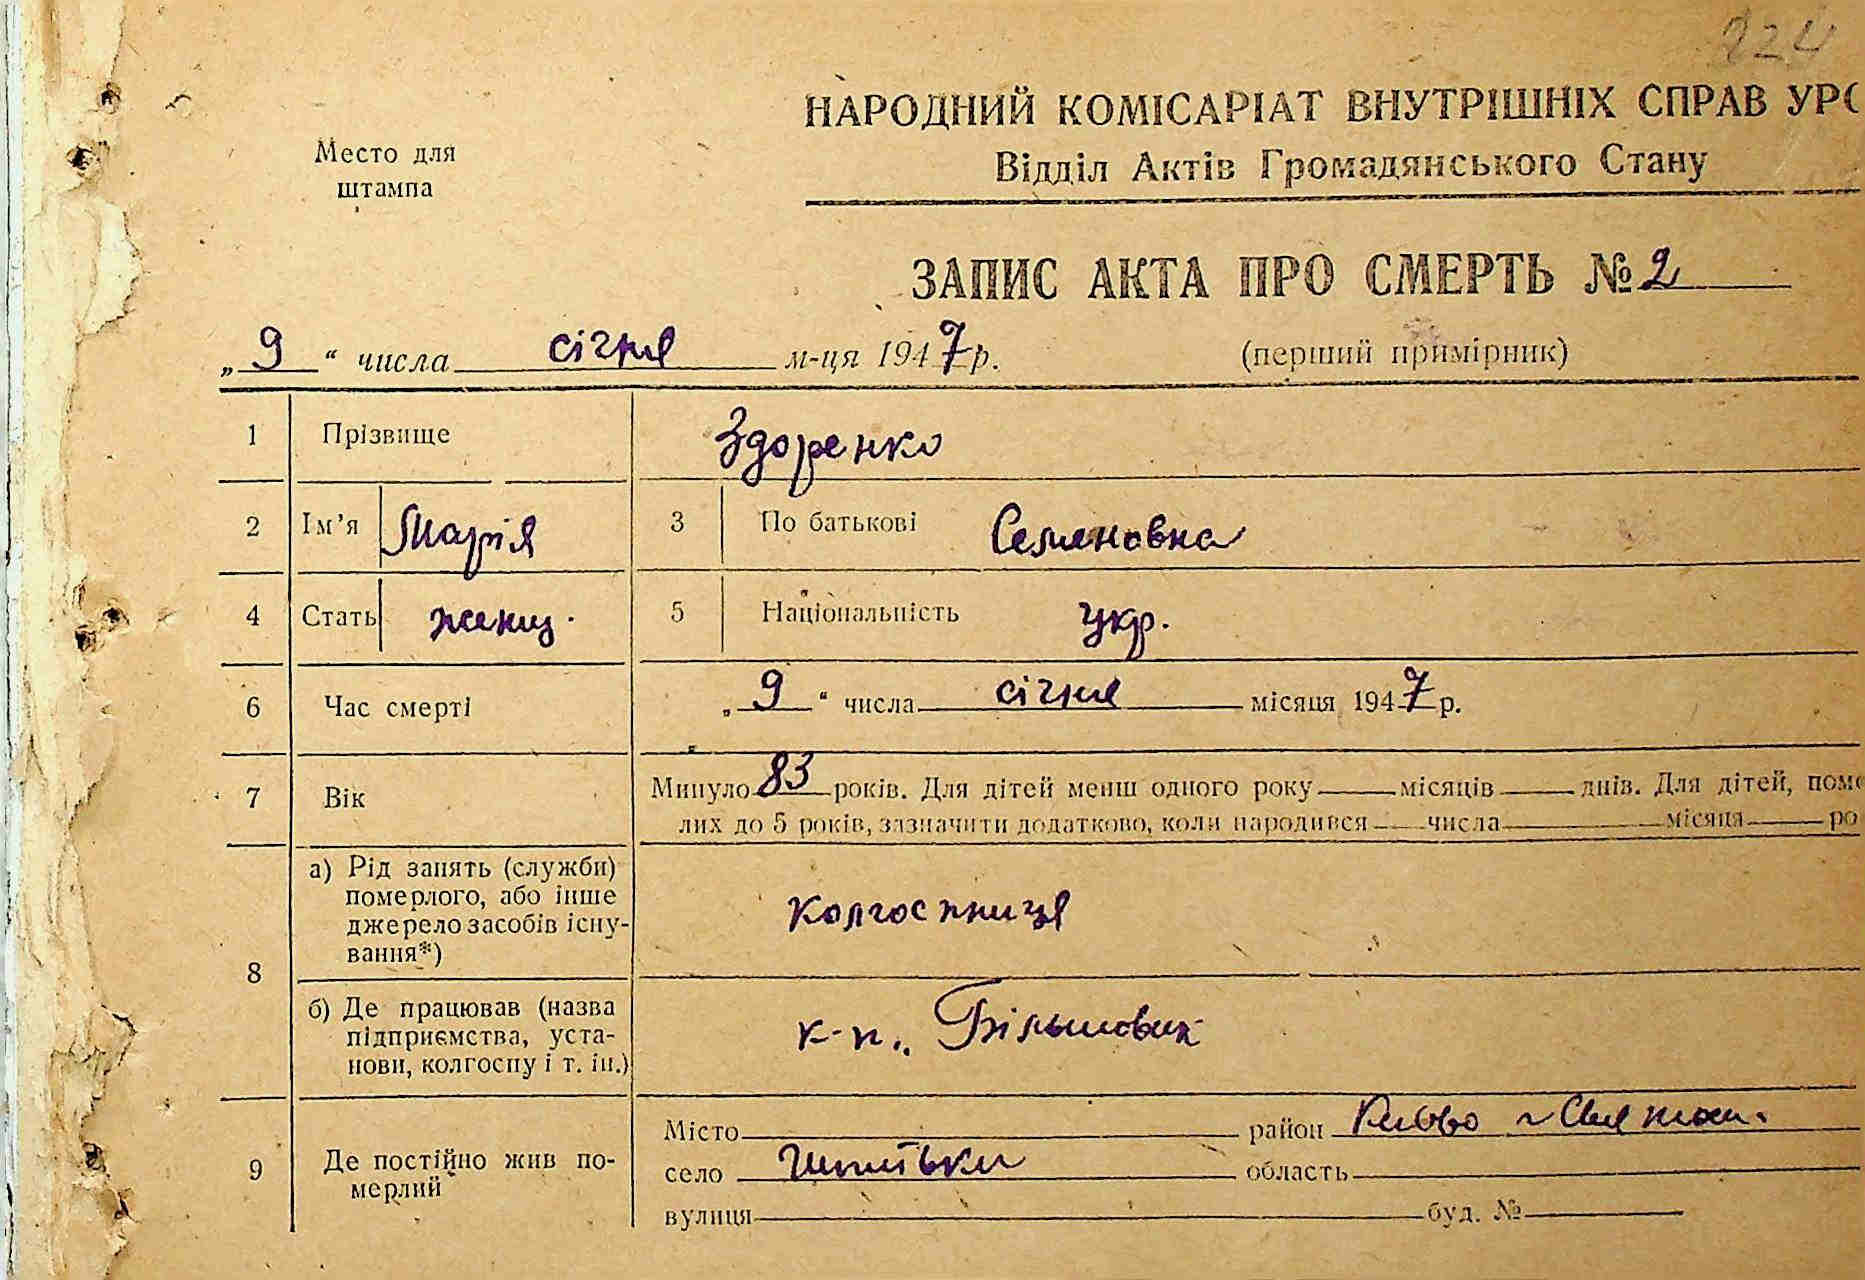 224
НАРОДНИЙ КОМІСАРІАТ ВНУТРІШНІХ СПРАВ УРС
Место для
штампа
Відділ Актів Громадянського Стану
ЗАПИС АКТА ПРО СМЕРТЬ № 2
„ 9 “ числа січня м-ця 1947 р. (перший примірник)
1 Прізвище Здоренко
2 Ім’я Марія 3 По батькові Семеновна
4 Стать женщ. 5 Національність укр.
6 Час смерті „ 9 “ числа січня місяця 1947 р.
7 Вік Минуло 83 років. Для дітей менш одного року місяців днів. Для дітей, поме
лих до 5 років, зазначити додатково, коли народився числа місяця ро
8 а) Рід занять (служби)
померлого, або інше
джерело засобів існу-
вання*)
колгоспниця
б) Де працював (назва
підприємства, уста-
нови, колгоспу і т. ін.)
к-п „Більшовик
9 Де постійно жив по-
мерлий
Місто район Києво - Святош.
село область
вулиця буд. №